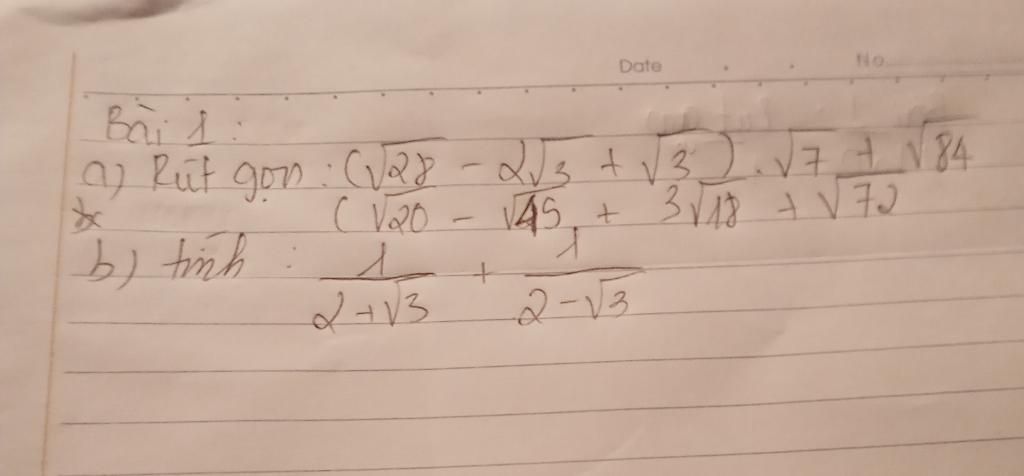 Date No
Bài 1:
a) Rút gọn: (√28 - 2√3 + √3).√7 + √84
(√20 - √45 + 3√18 + √72
b) tính : 1/(2+√3) + 1/(2-√3)